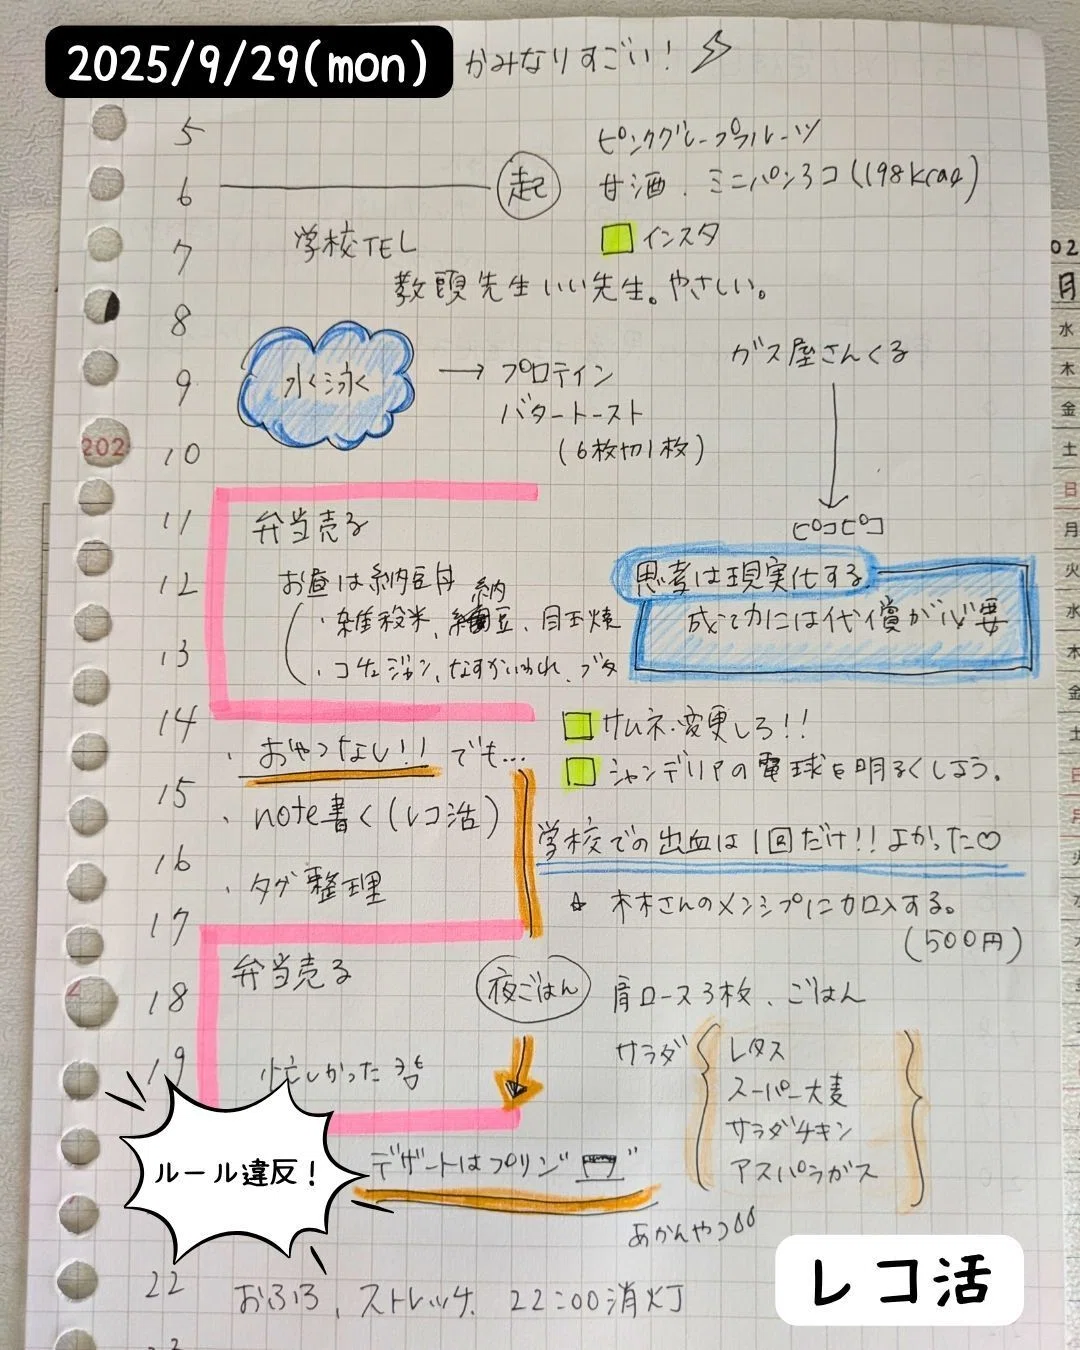 2025/9/29(mon)
かみなりすごい!
5
ピンクグレープフルーツ
6
起
甘酒、ミニパン3コ(198kcal)
7
学校TEL
インスタ
教頭先生いい先生。やさしい。
8
ガス屋さんくる
9
水泳
→プロテイン
バタートースト
(6枚切1枚)
10
202
11
弁当売る
ピコピコ
12
お昼は納豆丼
納
・雑穀米、豆、目玉焼
13
・コチュジャン、なすかいわれ、ブタ
思考は現実化する
成功には代償が必要
14
サムネ変更しろ!!
・おやつなし!!でも…
シャンデリアの電球を明るくしよう。
15
・note書く(レコ活)
学校での出血は1回だけ!!よかった♡
16
・タグ整理
☆木木さんのメンシプに加入する。
(500円)
17
弁当売る
夜ごはん
肩ロース3枚、ごはん
18
サラダ
レタス
スーパー大麦
サラダチキン
アスパラガス
19
忙しかった
ルール違反!
デザートはプリン
あかんやつ
22
おふろ、ストレッチ、22:00消灯
レコ活
02
月
水
木
金
土
日
月
火
水
木
金
土
日
月
火
水